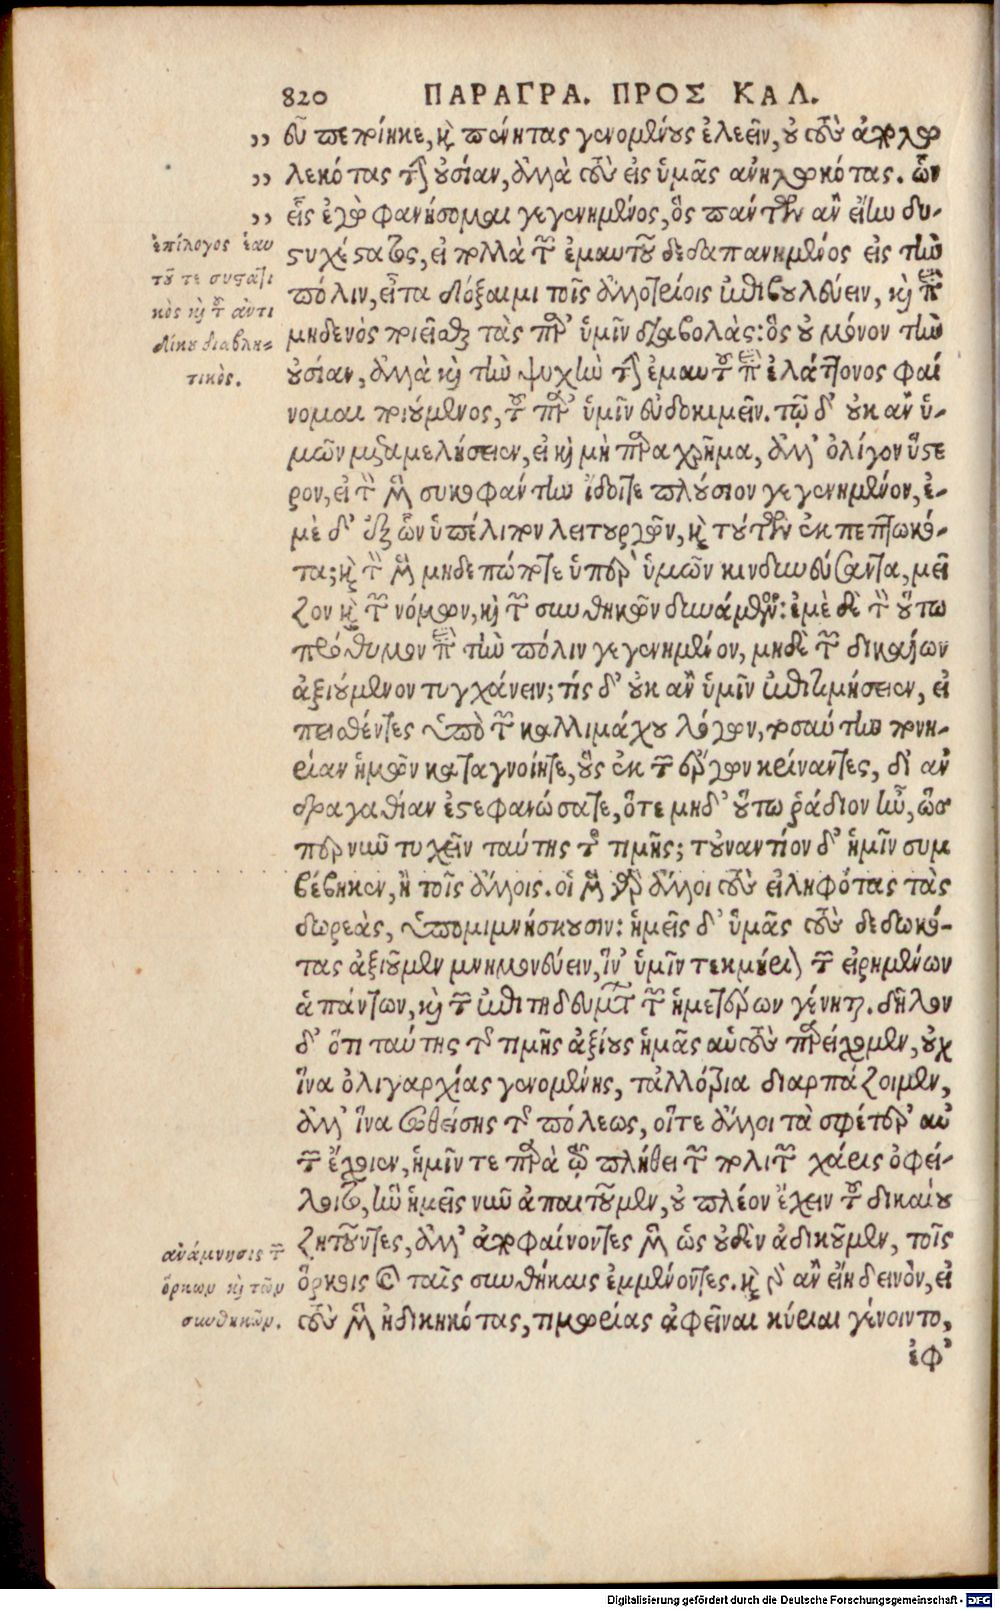 820 ΠΑΡΑΓΡΑ. ΠΡΟΣ ΚΑΛ.
„ οῦ πεποίηκε, καὶ πένητας γενομένους ἐλεεῖν, οὐ τοὺς ἀπολω
„ λεκότας τὴν οὐσίαν, ἀλλὰ τοὺς εἰς ὑμᾶς ἀνηλωκότας. ὧν
„ εἷς ἐγὼ φανήσομαι γεγενημένος, ὃς πάντων ἂν εἴην δυ-
ἐπίλογος ἑαυ
τοῦ τε συστατι
κὸς καὶ τοῦ ἀντι
δίκου διαβλη-
τικός.
στυχέστατος, εἰ πολλὰ τῶν ἐμαυτοῦ δεδαπανημένος εἰς τὴν
πόλιν, εἶτα δόξαιμι τοῖς ἀλλοτρίοις ἐπιβουλεύειν, καὶ περὶ
μηδενὸς ποιεῖσθαι τὰς παρ' ὑμῖν διαβολάς: ὃς οὐ μόνον τὴν
οὐσίαν, ἀλλὰ καὶ τὴν ψυχὴν τὴν ἐμαυτοῦ περὶ ἐλάττονος φαί
νομαι ποιούμενος, τοῦ παρ' ὑμῖν εὐδοκιμεῖν. τῷ δ' οὐκ ἂν ὑ-
μῶν μεταμελήσειεν, εἰ καὶ μὴ παραχρῆμα, ἀλλ' ὀλίγον ὕστε
ρον, εἰ τὸν μὲν συκοφάντην ἴδοιτε πλούσιον γεγενημένον, ἐ-
μὲ δ' ἐξ ὧν ὑπέλιπον λειτουργῶν, καὶ τούτων ἐκπεπτωκό-
τα; καὶ τὸν μὲν μηδεπώποτε ὑπὲρ ὑμῶν κινδυνεύσαντα, μεῖ
ζον καὶ τῶν νόμων, καὶ τῶν συνθηκῶν δυνάμενον: ἐμὲ δὲ τὸν οὕτω
πρόθυμον περὶ τὴν πόλιν γεγενημένον, μηδὲ τῶν δικαίων
ἀξιούμενον τυγχάνειν; τίς δ' οὐκ ἂν ὑμῖν ἐπιτιμήσειεν, εἰ
πεισθέντες ὑπὸ τῶν καλλιμάχου λόγων, τοσαύτην πονη-
ρίαν ἡμῶν καταγνοίητε, οὓς ἐκ τῶν ἔργων κρίναντες, δι' ἀν
δραγαθίαν ἐστεφανώσατε, ὅτε μηδ' οὕτω ῥᾴδιον ἦν, ὥσ
περ νῦν τυχεῖν ταύτης τῆς τιμῆς; τοὐναντίον δ' ἡμῖν συμ
βέβηκεν, ἢ τοῖς ἄλλοις. οἱ μὲν γὰρ ἄλλοι τοὺς εἰληφότας τὰς
δωρεὰς, ὑπομιμνήσκουσιν: ἡμεῖς δ' ὑμᾶς τοὺς δεδωκό-
τας ἀξιοῦμεν μνημονεύειν, ἵν' ὑμῖν τεκμήριον τῶν εἰρημένων
ἁπάντων, καὶ τῶν ἐπιτηδευμάτων τῶν ἡμετέρων γένηται. δῆλον
δ' ὅτι ταύτης τῆς τιμῆς ἀξίους ἡμᾶς αὐτοὺς παρείχομεν, οὐχ
ἵνα ὀλιγαρχίας γενομένης, τἀλλότρια διαρπάζοιμεν,
ἀλλ' ἵνα σωθείσης τῆς πόλεως, οἵ τε ἄλλοι τὰ σφέτερ' αὐ
τῶν ἔχοιεν, ἡμῖν τε παρὰ τῷ πλήθει τῶν πολιτῶν χάρις ὀφεί-
λοιτο, ἣν ἡμεῖς νῦν ἀπαιτοῦμεν, οὐ πλέον ἔχειν τοῦ δικαίου
ἀνάμνησις τῶν
ὅρκων καὶ τῶν
συνθηκῶν.
ζητοῦντες, ἀλλ' ἀποφαίνοντες μὲν ὡς οὐδὲν ἀδικοῦμεν, τοῖς
ὅρκοις δὲ ταῖς συνθήκαις ἐμμένοντες. καὶ γὰρ ἂν εἴη δεινὸν, εἰ
τοὺς μὲν ἠδικηκότας, τιμωρίας ἀφεῖναι κύριαι γένοιντο,
ἐφ'
Digitalisierung gefördert durch die Deutsche Forschungsgemeinschaft - DFG